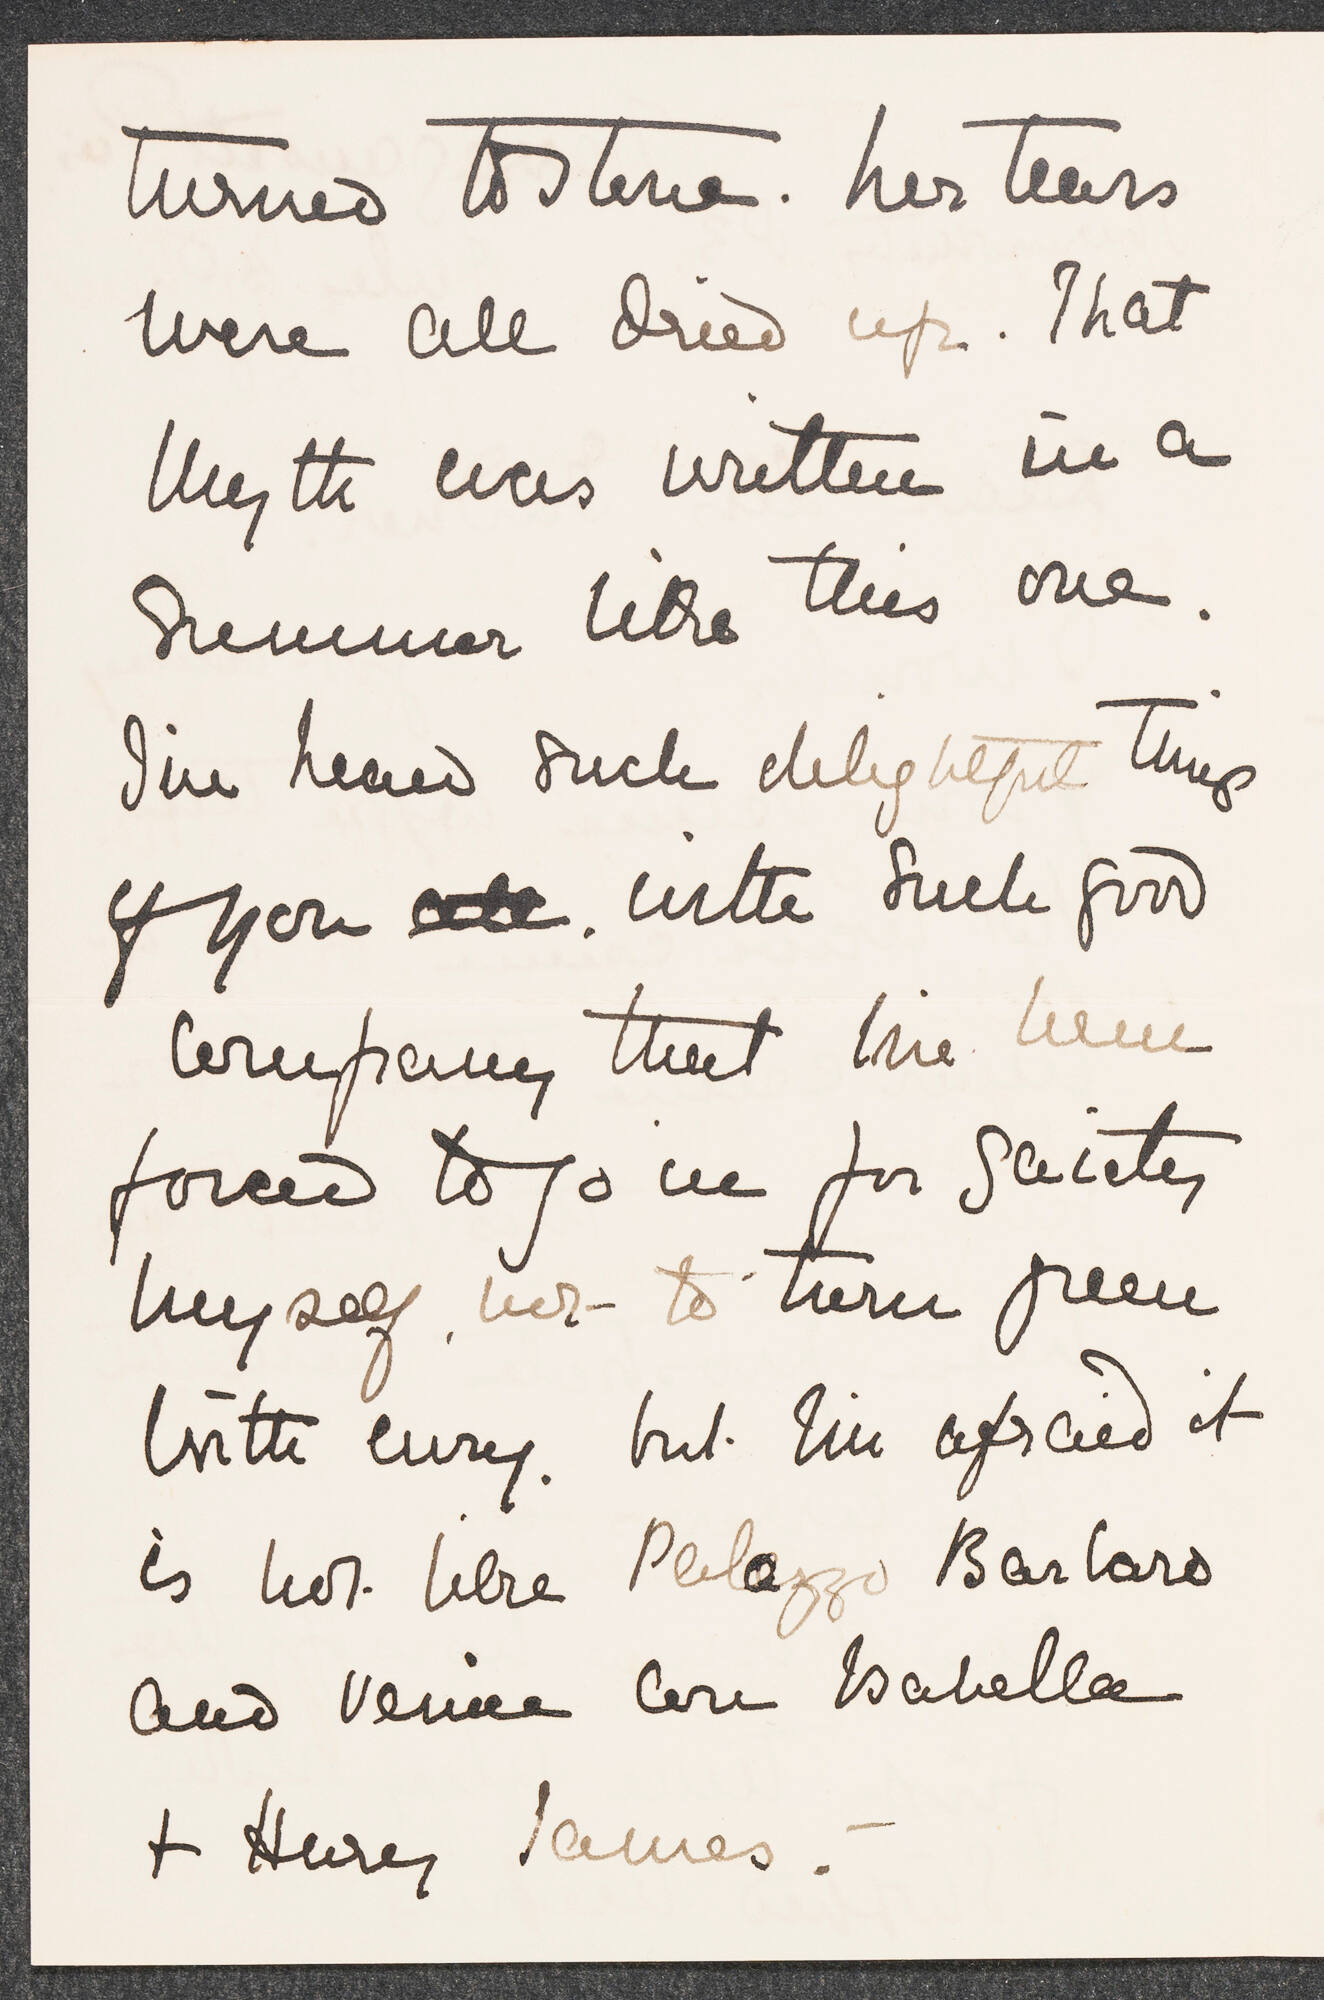 turned to stone. her tears
were all dried up. That
Myth was written in a
Summer like this one.
I've heard such delightful things
of you . with such good
Company that I've been
forced to go in for Gaiety
myself, not to turn green
with envy. but I'm afraid it
is not like Palazzo Barbaro
and Venice con Isabella
+ Henry James. –